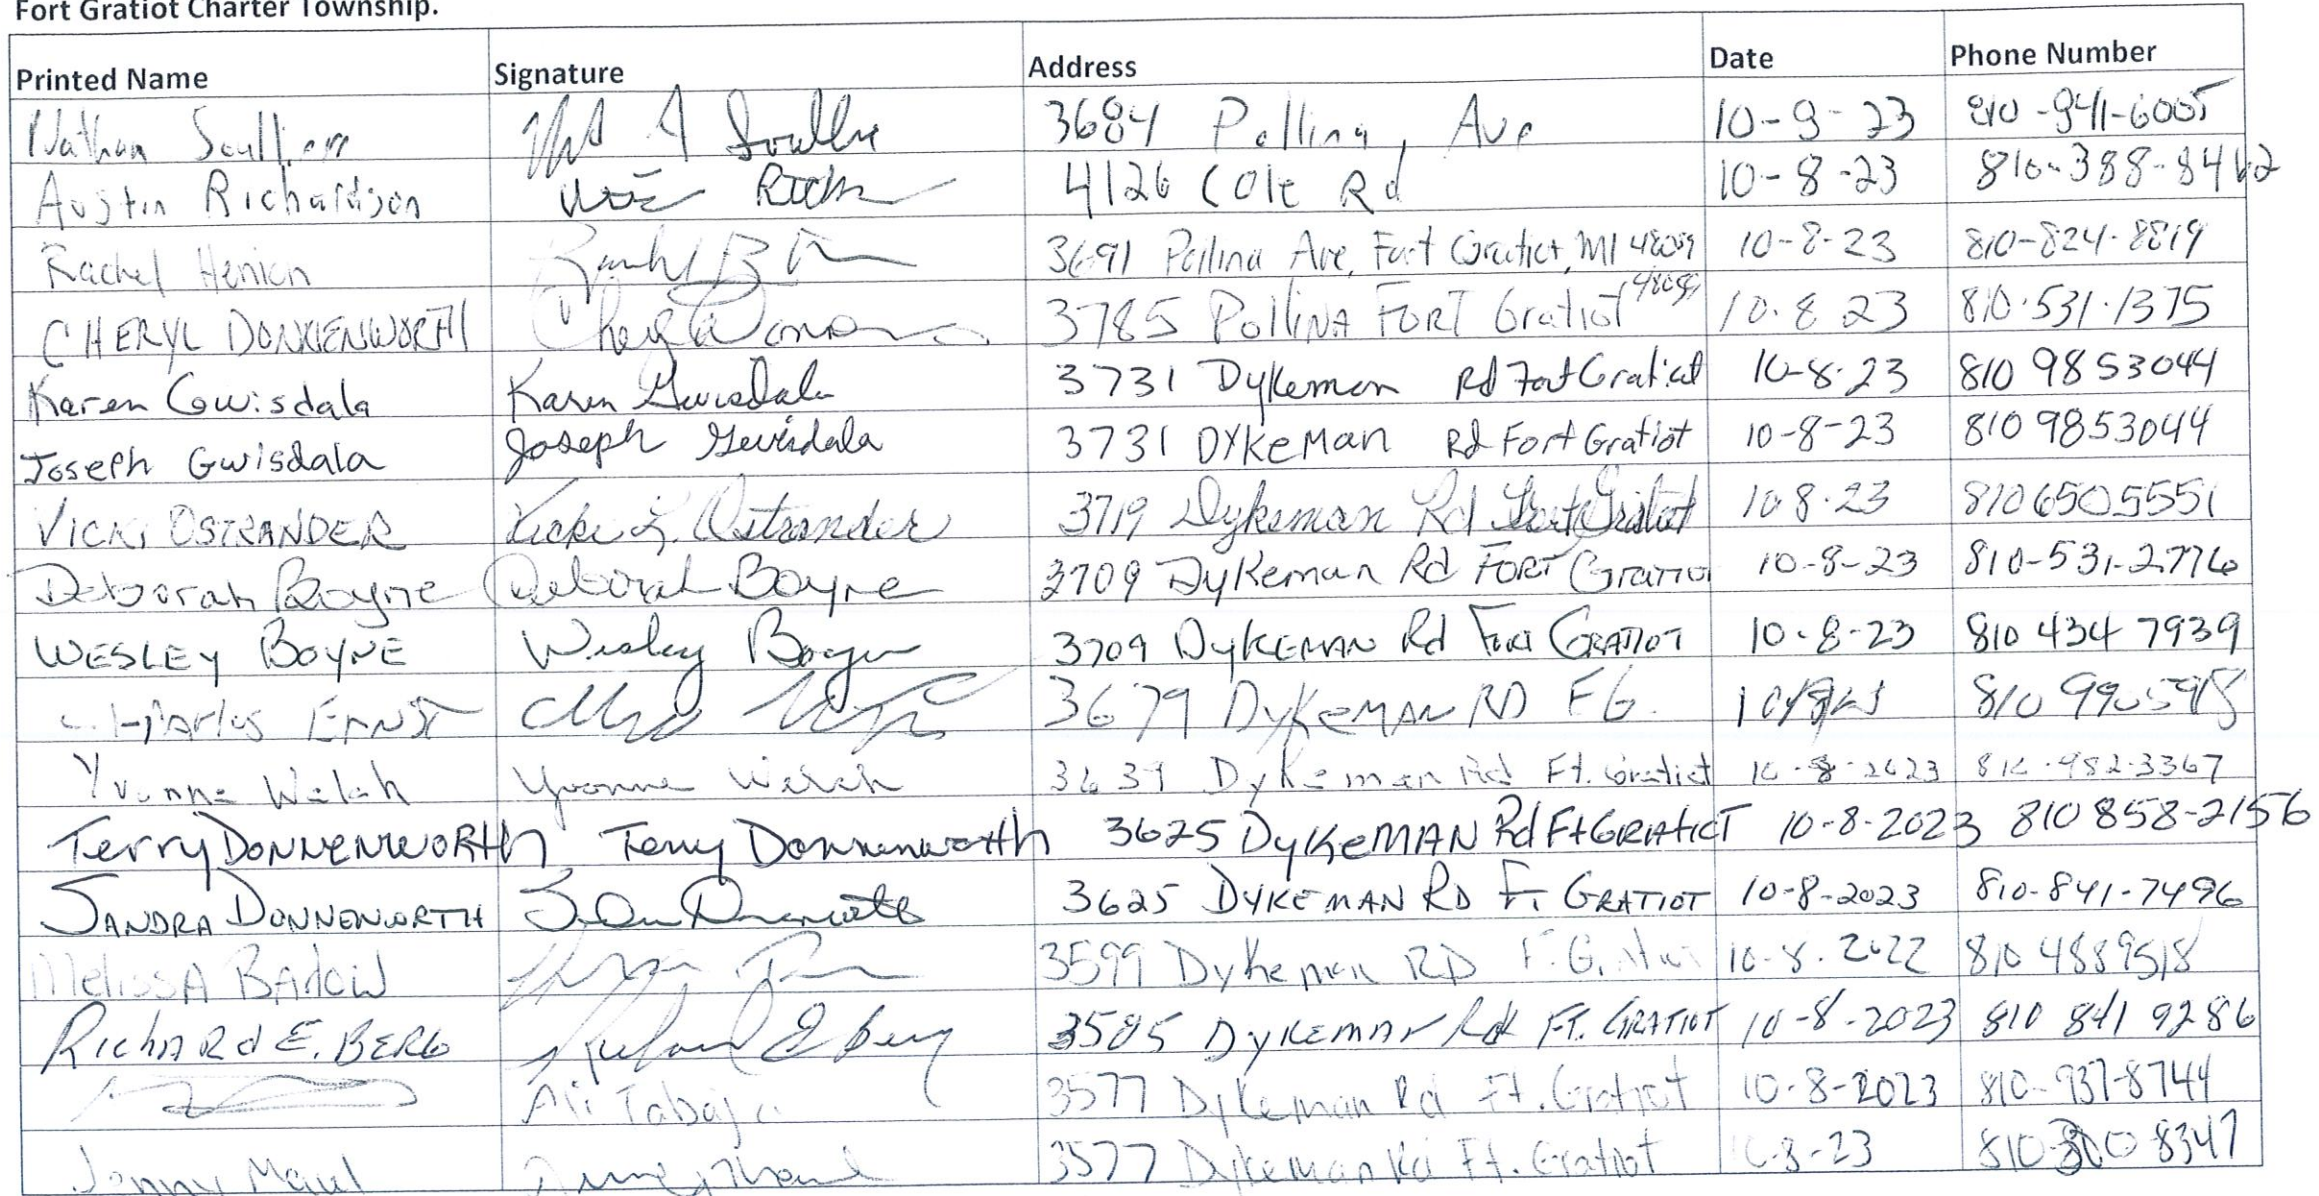 Fort Gratiot Charter Township.
Printed Name Signature Address Date Phone Number
Nathan 3684 Pollina Ave 10-9-23 810-941-6005
Austin Richardson 4126 Cole Rd 10-8-23 810-388-8462
Rachel Henion 3691 Pollina Ave, Fort Gratiot, MI 48059 10-8-23 810-824-8819
CHERYL DONNENWORTH 3785 POllINA FORT Gratiot 48059 10.8.23 810.531.1375
Karen Gwisdala Karen Gwisdala 3731 Dykeman Rd Fort Gratiot 10-8-23 810 9853044
Joseph Gwisdala Joseph Gwisdala 3731 DYKEMan Rd Fort Gratiot 10-8-23 810 9853044
VICKI OSTRANDER Vicki L. Ostrander 3719 Dykeman Rd Fort Gratiot 10 8.23 8106505551
Deborah Boyne Deborah Boyne 3709 Dykeman Rd FORT Gratiot 10-8-23 810-531-2776
WESLEY BOYNE Wesley Boyne 3709 DYKEMAN Rd Fort GRATIOT 10-8-23 810 434 7939
CHArles ERNST 3679 DyKeMAN RD FG.  810
Yvonne Welch Yvonne Welch 3639 Dykeman Rd Ft. Gratiot 10-8-2023 810-982-3367
Terry DONNENWORTH Terry Donnenworth 3625 DyKeMAN Rd Ft GRAtiOT 10-8-2023 810 858-2156
SANDRA DONNENWORTH 3625 DYKEMAN RD FT GRATIOT 10-8-2023 810-841-7496
MelissA 3599 Dykeman RD 10-8.2022 810 4889518
RichARd E. BERG Richard E Berg 3585 DyKEMAN Rd FT. GRATIOT 10-8-2023 810 841 9286
Ali 3577 Dykeman Rd Ft. Gratiot 10-8-2023 810-937-8744
Maul 3577 Dykeman Rd Ft. Gratiot 8-23 810 8347